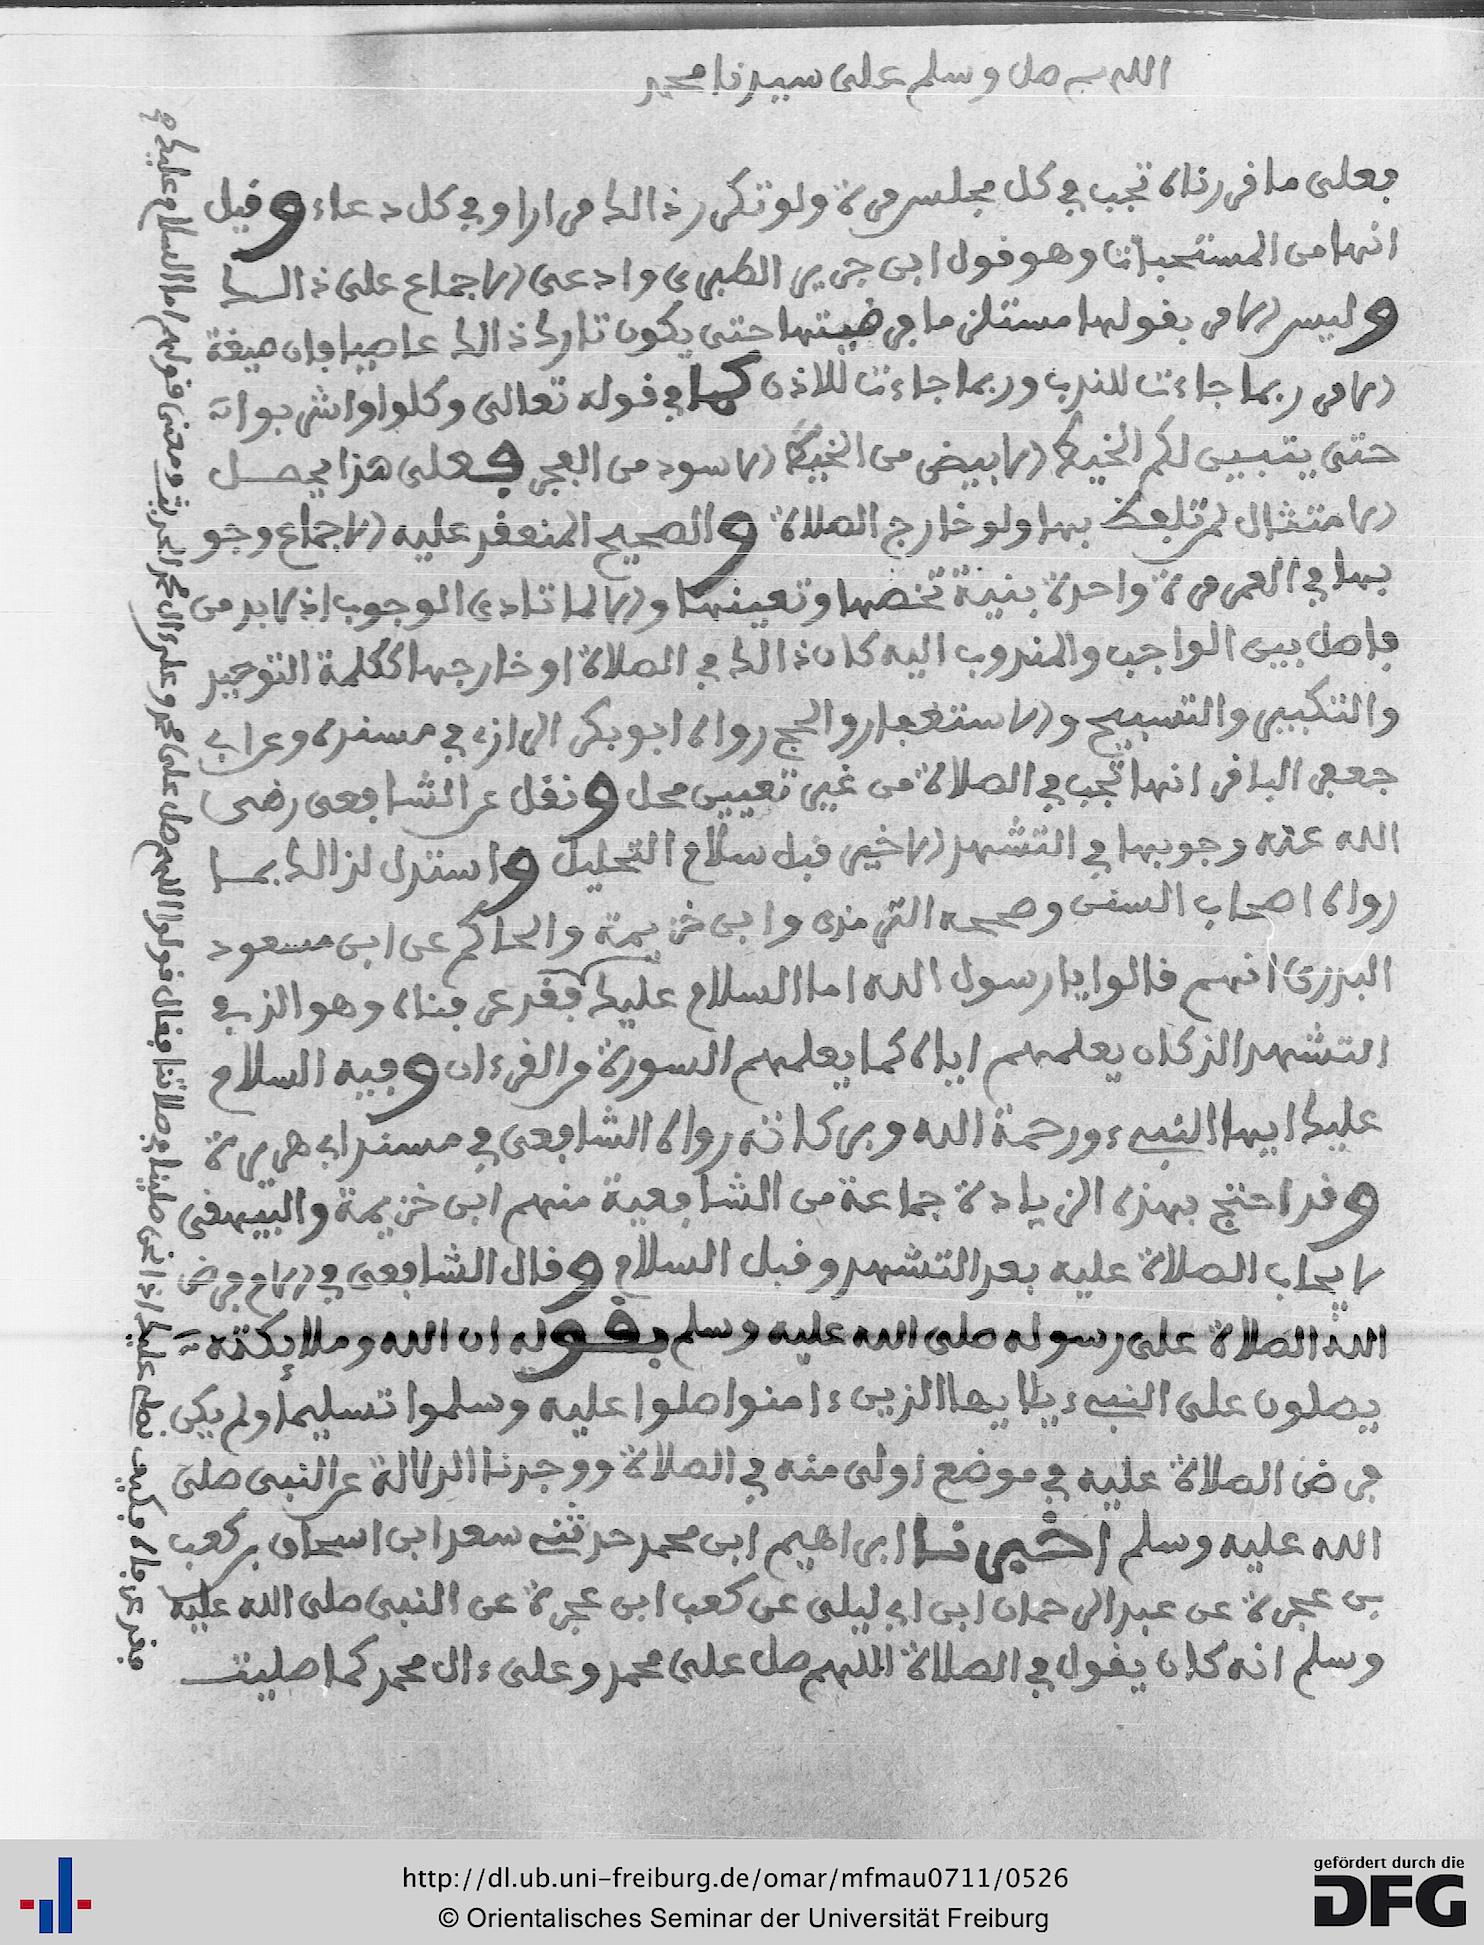 اللهم صل وسلم على سيدنا محمد
فعلى ما قررناه تجب في كل مجلس مرة ولو تكرر ذالك مرارا وفي كل دعاء وقيل
انها من المستحبات وهو قول ابن جرير الطبري وادعى الاجماع على ذالك
وليس الامر بقولها مستلزما فرضيتها حتى يكون تارك ذالك عاصيا فان صيغة
الامر ربما جاءت للندب وربما جاءت للاذن كما في قوله تعالى وكلوا واشربوا
حتى يتبين لكم الخيط الابيض من الخيط الاسود من الفجر فعلى هذا يحصل
الامتثال لمن تلفظ بها ولو خارج الصلاة والصحيح المنعقد عليه الاجماع وجو
بها في العمر مرة واحدة بنية تخصها وتعينها والا لما تادى الوجوب اذ لا بد من
فاصل بين الواجب والمندوب اليه كان ذالك في الصلاة او خارجها ككلمة التوحيد
والتكبير والتسبيح والاستغفار والحج رواه ابو بكر الرازي في مسنده وعن ابي
جعفر الباقر انها تجب في الصلاة من غير تعيين محل ونقل عن الشافعي رضي
الله عنه وجوبها في التشهد الاخير قبل سلام التحليل واستدل لذالك بما
رواه اصحاب السنن وصححه الترمذي وابن خزيمة والحاكم عن ابي مسعود
البدري انهم قالوا يا رسول الله اما السلام عليك فقد عرفناه وهو الذي في
التشهد الذي كان يعلمهم اياه كما يعلمهم السورة من القرءان وفيه السلام
عليك ايها النبيء ورحمة الله وبركاته رواه الشافعي في مسند ابي هريرة
وقد احتج بهذه الزيادة جماعة من الشافعية منهم ابن خزيمة والبيهقي
لايجاب الصلاة عليه بعد التشهد وقبل السلام وقال الشافعي في الام فرض
الله الصلاة على رسوله صلى الله عليه وسلم بقوله ان الله وملائكته
يصلون على النبيء يا ايها الذين ءامنوا صلوا عليه وسلموا تسليما ولم يكن
فرض الصلاة عليه في موضع اولى منه في الصلاة ووجدنا الدلالة عن النبي صلى
الله عليه وسلم اخبرنا ابراهيم ابن محمد حدثني سعد ابن اسحاق بن كعب
بن عجرة عن عبد الرحمان ابن ابي ليلى عن كعب ابن عجرة عن النبي صلى الله عليه
وسلم انه كان يقول في الصلاة اللهم صل على محمد وعلى ءال محمد كما صليت
فقد عرفناه فكيف نصلي عليك اذا نحن صلينا في صلاتنا فقال قولوا اللهم صل على محمد وعلى ءال محمد الحديث ومعنى قولهم اما السلام عليك
http://dl.ub.uni-freiburg.de/omar/mfmau0711/0526
© Orientalisches Seminar der Universität Freiburg
gefördert durch die
DFG